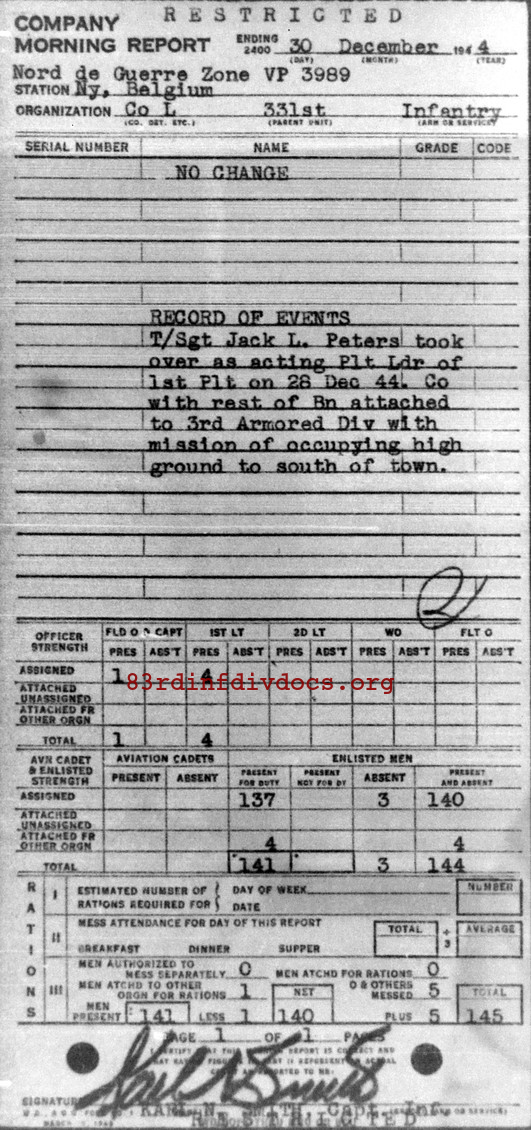 RESTRICTED
COMPANY
MORNING REPORT
ENDING 2400 30 December 1944
(DAY) (MONTH) (YEAR)
Nord de Guerre Zone VP 3989
STATION Ny, Belgium
ORGANIZATION Co L 331st Infantry
(CO. DET. ETC.) (PARENT UNIT) (ARM OR SERVICE)
SERIAL NUMBER NAME GRADE CODE
NO CHANGE
RECORD OF EVENTS
T/Sgt Jack L. Peters took
over as acting Plt Ldr of
1st Plt on 28 Dec 44. Co
with rest of Bn attached
to 3rd Armored Div with
mission of occupying high
ground to south of town.
2
OFFICER STRENGTH FLD O & CAPT 1ST LT 2D LT WO FLT O
PRES ABS'T PRES ABS'T PRES ABS'T PRES ABS'T PRES ABS'T
ASSIGNED 1 4
83rdinfdivdocs.org
ATTACHED UNASSIGNED
ATTACHED FR OTHER ORGN
TOTAL 1 4
AVN CADET & ENLISTED STRENGTH AVIATION CADETS ENLISTED MEN
PRESENT ABSENT PRESENT FOR DUTY PRESENT NOT FOR DY ABSENT PRESENT AND ABSENT
ASSIGNED 137 3 140
ATTACHED UNASSIGNED
ATTACHED FR OTHER ORGN 4 4
TOTAL 141 3 144
RATIONS
I ESTIMATED NUMBER OF RATIONS REQUIRED FOR { DAY OF WEEK NUMBER
DATE
II MESS ATTENDANCE FOR DAY OF THIS REPORT TOTAL ÷ 3 AVERAGE
BREAKFAST DINNER SUPPER
III MEN AUTHORIZED TO MESS SEPARATELY 0 MEN ATCHD FOR RATIONS 0
MEN ATCHD TO OTHER ORGN FOR RATIONS 1 NET O & OTHERS MESSED 5 TOTAL
MEN PRESENT 141 LESS 1 140 PLUS 5 145
PAGE 1 OF 1 PAGES
SIGNATURE
Capt. Inf.
RESTRICTED